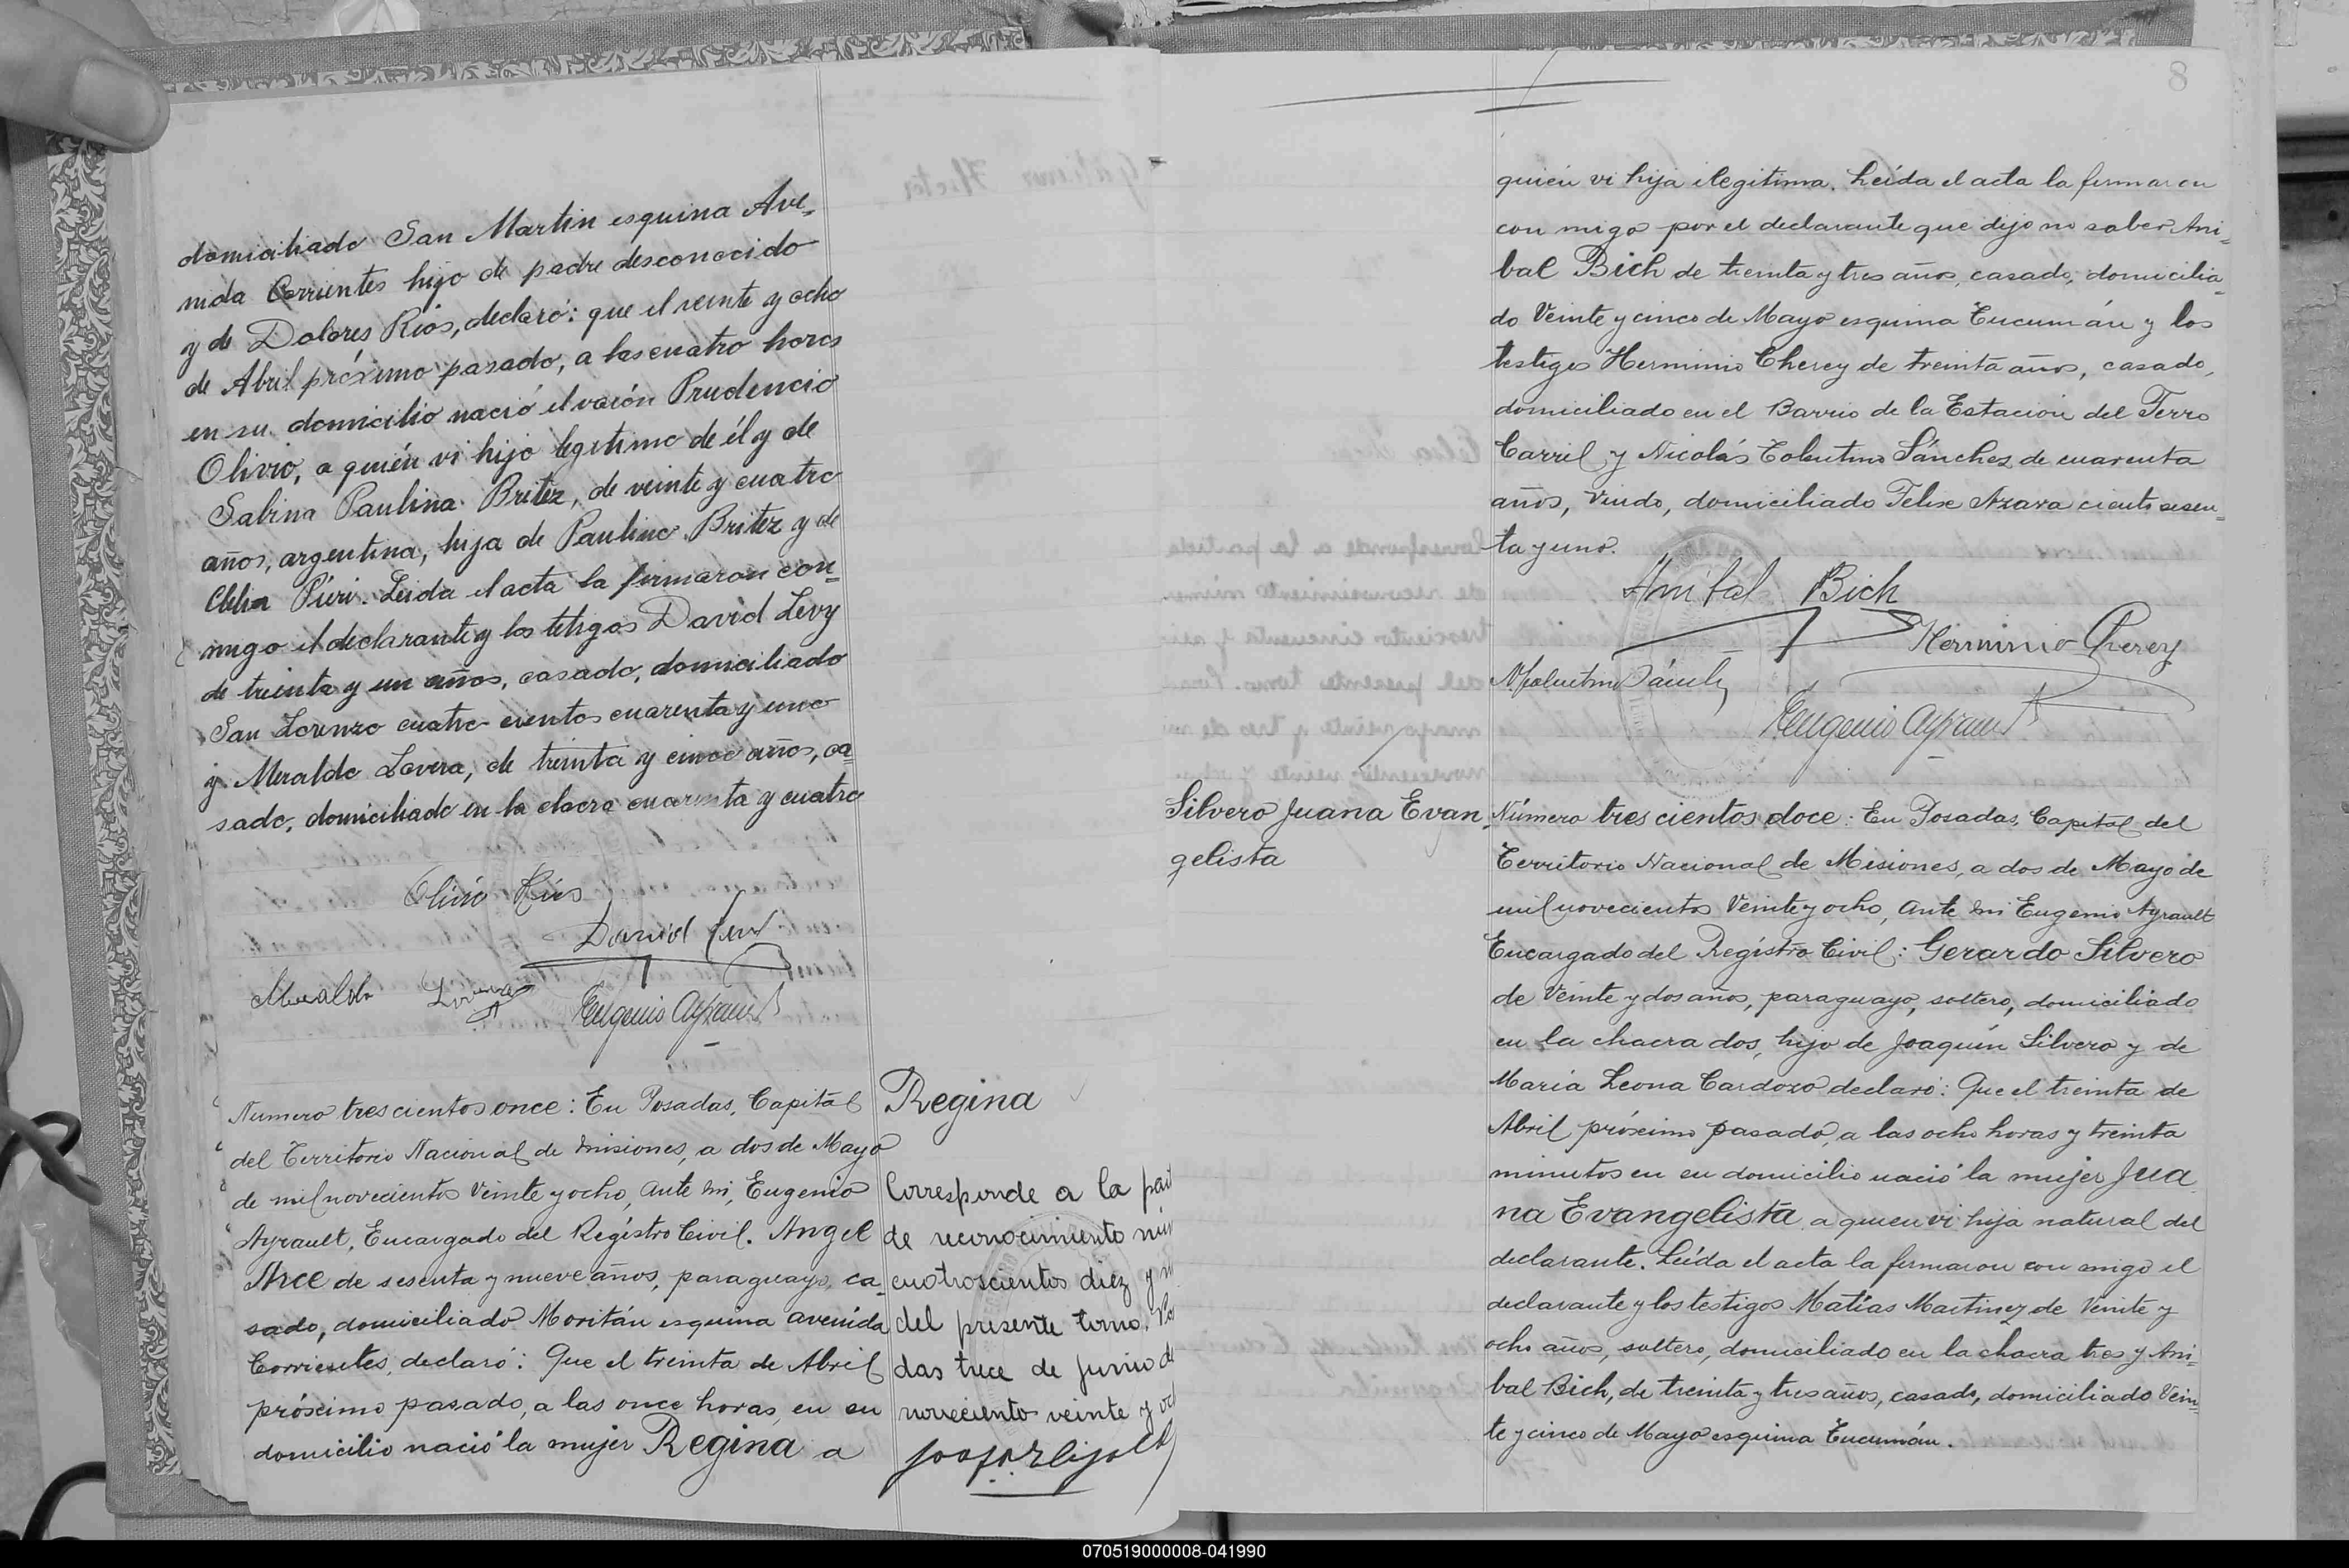 domiciliado San Martin esquina Ave-
nida Corrientes hijo de padre desconocido
y de Dolores Rios, declaró: que el veinte y ocho
de Abril próximo pasado, a las cuatro horas
en su domicilio nació el varón Prudencio
Olivio, a quién vi hijo legitimo de él y de
Sabina Paulina Britez, de veinte y cuatro
años, argentina, hija de Paulino Britez y de
Clelia Piris. Leida el acta la firmaron con-
migo el declarante y los tetigos David Levy
de treinta y un años, casado, domiciliado
San Lorenzo cuatro cientos cuarenta y uno
y Meraldo Lovera, de treinta y cinco años, ca-
sado, domiciliado en la chacra cuarenta y cuatro
Olivio Rios
David Levy
Meraldo Lovera
Eugenio Ayrault
Numero trescientos once: En Posadas, Capital
del Territorio Nacional de Misiones, a dos de Mayo
de mil novecientos Veinte y ocho, Ante mi, Eugenio
Ayrault, Encargado del Registro Civil. Angel
Arce de sesenta y nueve años, paraguayo, ca-
sado, domiciliado Moritán esquina avenida
Corrientes, declaró: Que el treinta de Abril
próximo pasado, a las once horas, en su
domicilio nació la mujer Regina a
Regina
Corresponde a la
de reconocimiento
cuotroscientos diez y
del presente tomo.
das trece de Junio
novecientos veinte y
8
quién vi hija ilegitima. Leída el acta la firmaron
con migo por el declarante que dijo no saber Ani-
bal Bich de treinta y tres años, casado, domicilia-
do Veinte y cinco de Mayo esquina Tucumán y los
testigos Herminio Cherey de treinta años, casado,
domiciliado en el Barrio de la Estación del Ferro
Carril y Nicolás Tolentino Sánchez de cuarenta
años, Viudo, domiciliado Felix Azara ciento sesen-
ta y uno.
Anibal Bich
Herminio Cherey
N. Tolentino Sánchez
Eugenio Ayrault
Silvero Juana Evan-
gelista
Número trescientos doce: En Posadas, Capital del
Territorio Nacional de Misiones, a dos de Mayo de
mil novecientos Veinte y ocho, Ante mi Eugenio Ayrault
Encargado del Registro Civil: Gerardo Silvero
de Veinte y dos años, paraguayo, soltero, domiciliado
en la chacra dos, hijo de Joaquín Silvero y de
María Leona Cardozo declaró: Que el treinta de
Abril próximo pasado, a las ocho horas y treinta
minutos en su domicilio nació la mujer Jua
na Evangelista, a quien vi hija natural del
declarante. Leída el acta la firmaron con migo el
declarante y los testigos Matías Martinez de Veinte y
ocho años, soltero, domiciliado en la chacra tres y Ani-
bal Bich, de treinta y tres años, casado, domiciliado Vein-
te y cinco de Mayo esquina Tucumán.
070519000008-041990